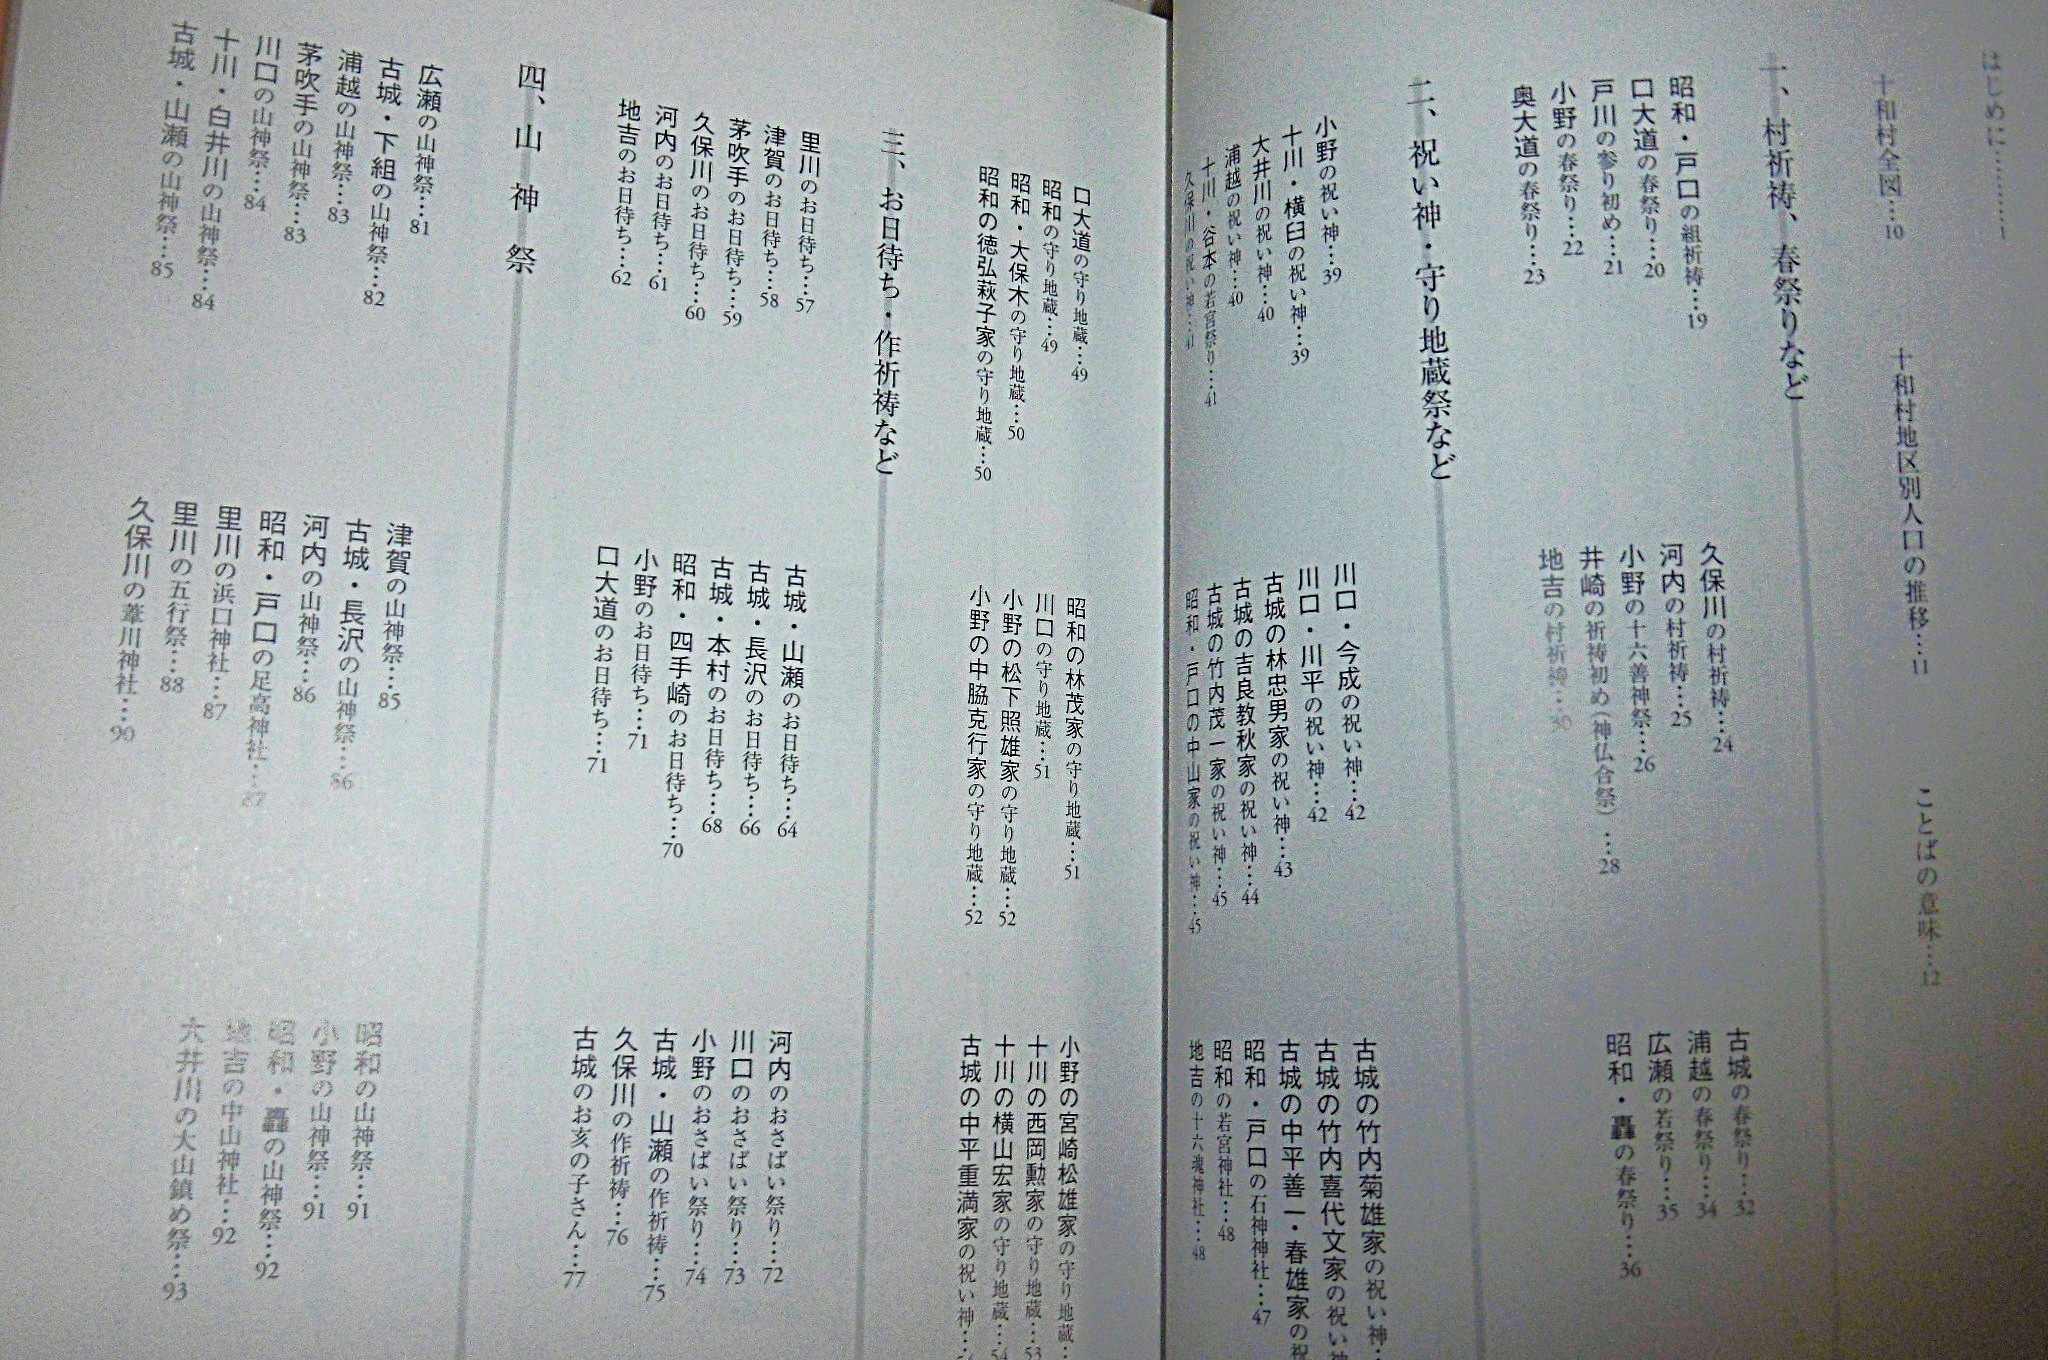 はじめに…………1
十和村全図…10
十和村地区別人口の推移…11
ことばの意味…12
一、村祈祷、春祭りなど
昭和・戸口の組祈祷…19
口大道の春祭り…20
戸川の参り初め…21
小野の春祭り…22
奥大道の春祭り…23
久保川の村祈祷…24
河内の村祈祷…25
小野の十六善神祭…26
井崎の祈祷初め(神仏合祭)…28
地吉の村祈祷…30
古城の春祭り…32
浦越の春祭り…34
広瀬の若祭り…35
昭和・轟の春祭り…36
二、祝い神・守り地蔵祭など
小野の祝い神…39
十川・横臼の祝い神…39
大井川の祝い神…40
浦越の祝い神…40
十川・谷本の若宮祭り…41
久保川の祝い神…41
川口・今成の祝い神…42
川口・川平の祝い神…42
古城の林忠男家の祝い神…43
古城の吉良教秋家の祝い神…44
古城の竹内茂一家の祝い神…45
昭和・戸口の中山家の祝い神…45
古城の竹内菊雄家の祝い神…
古城の竹内喜代文家の祝い神
古城の中平善一・春雄家の祝
昭和・戸口の石神神社…47
昭和の若宮神社…48
地吉の十六魂神社…48
口大道の守り地蔵…49
昭和の守り地蔵…49
昭和・大保木の守り地蔵…50
昭和の徳弘萩子家の守り地蔵…50
昭和の林茂家の守り地蔵…51
川口の守り地蔵…51
小野の松下照雄家の守り地蔵…52
小野の中脇克行家の守り地蔵…52
小野の宮崎松雄家の守り地蔵…
十川の西岡勲家の守り地蔵…53
十川の横山宏家の守り地蔵…54
古城の中平重満家の祝い神…
三、お日待ち・作祈祷など
里川のお日待ち…57
津賀のお日待ち…58
茅吹手のお日待ち…59
久保川のお日待ち…60
河内のお日待ち…61
地吉のお日待ち…62
古城・山瀬のお日待ち…64
古城・長沢のお日待ち…66
古城・本村のお日待ち…68
昭和・四手崎のお日待ち…70
小野のお日待ち…71
口大道のお日待ち…71
河内のおさばい祭り…72
川口のおさばい祭り…73
小野のおさばい祭り…74
古城・山瀬の作祈祷…75
久保川の作祈祷…76
古城のお亥の子さん…77
四、山神祭
広瀬の山神祭…81
古城・下組の山神祭…82
浦越の山神祭…83
茅吹手の山神祭…83
川口の山神祭…84
十川・白井川の山神祭…84
古城・山瀬の山神祭…85
津賀の山神祭…85
古城・長沢の山神祭…86
河内の山神祭…86
昭和・戸口の足高神社…87
里川の浜口神社…87
里川の五行祭…88
久保川の葦川神社…90
昭和の山神祭…91
小野の山神祭…91
昭和・轟の山神祭…92
地吉の中山神社…92
大井川の大山鎮め祭…93